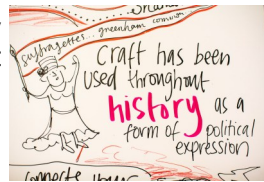 Shar
Suffragettes... greenham common
Craft has been
used throughout
history as a
form of political
expression